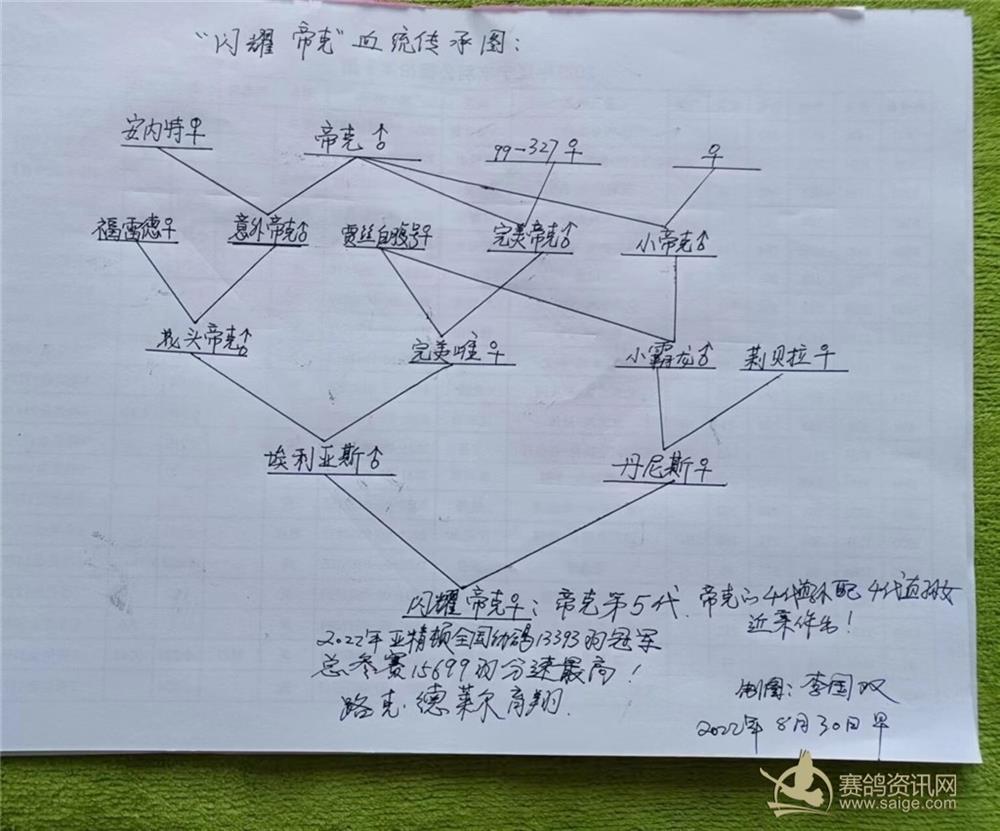 "闪耀帝克"血统传承图:
安内特♀ 帝克♂ 99-327♀ ♀
福雷德♀ 意外帝克♂ 贾丝自豪号♀ 完美帝克♂ 小帝克♂
龙头帝克♂ 完美雌♀ 小霸龙♂ 莉贝拉♀
埃利亚斯♂ 丹尼斯♀
闪耀帝克♀:帝克第5代.帝克的4代直孙配4代直孙女
近亲作出!
2022年亚精顿全国幼鸽13393羽冠军
总参赛15699羽分速最高!
路克·德莱尔育翔.
制图:李国双
2022年8月30日早
赛鸽资讯网
www.saige.com